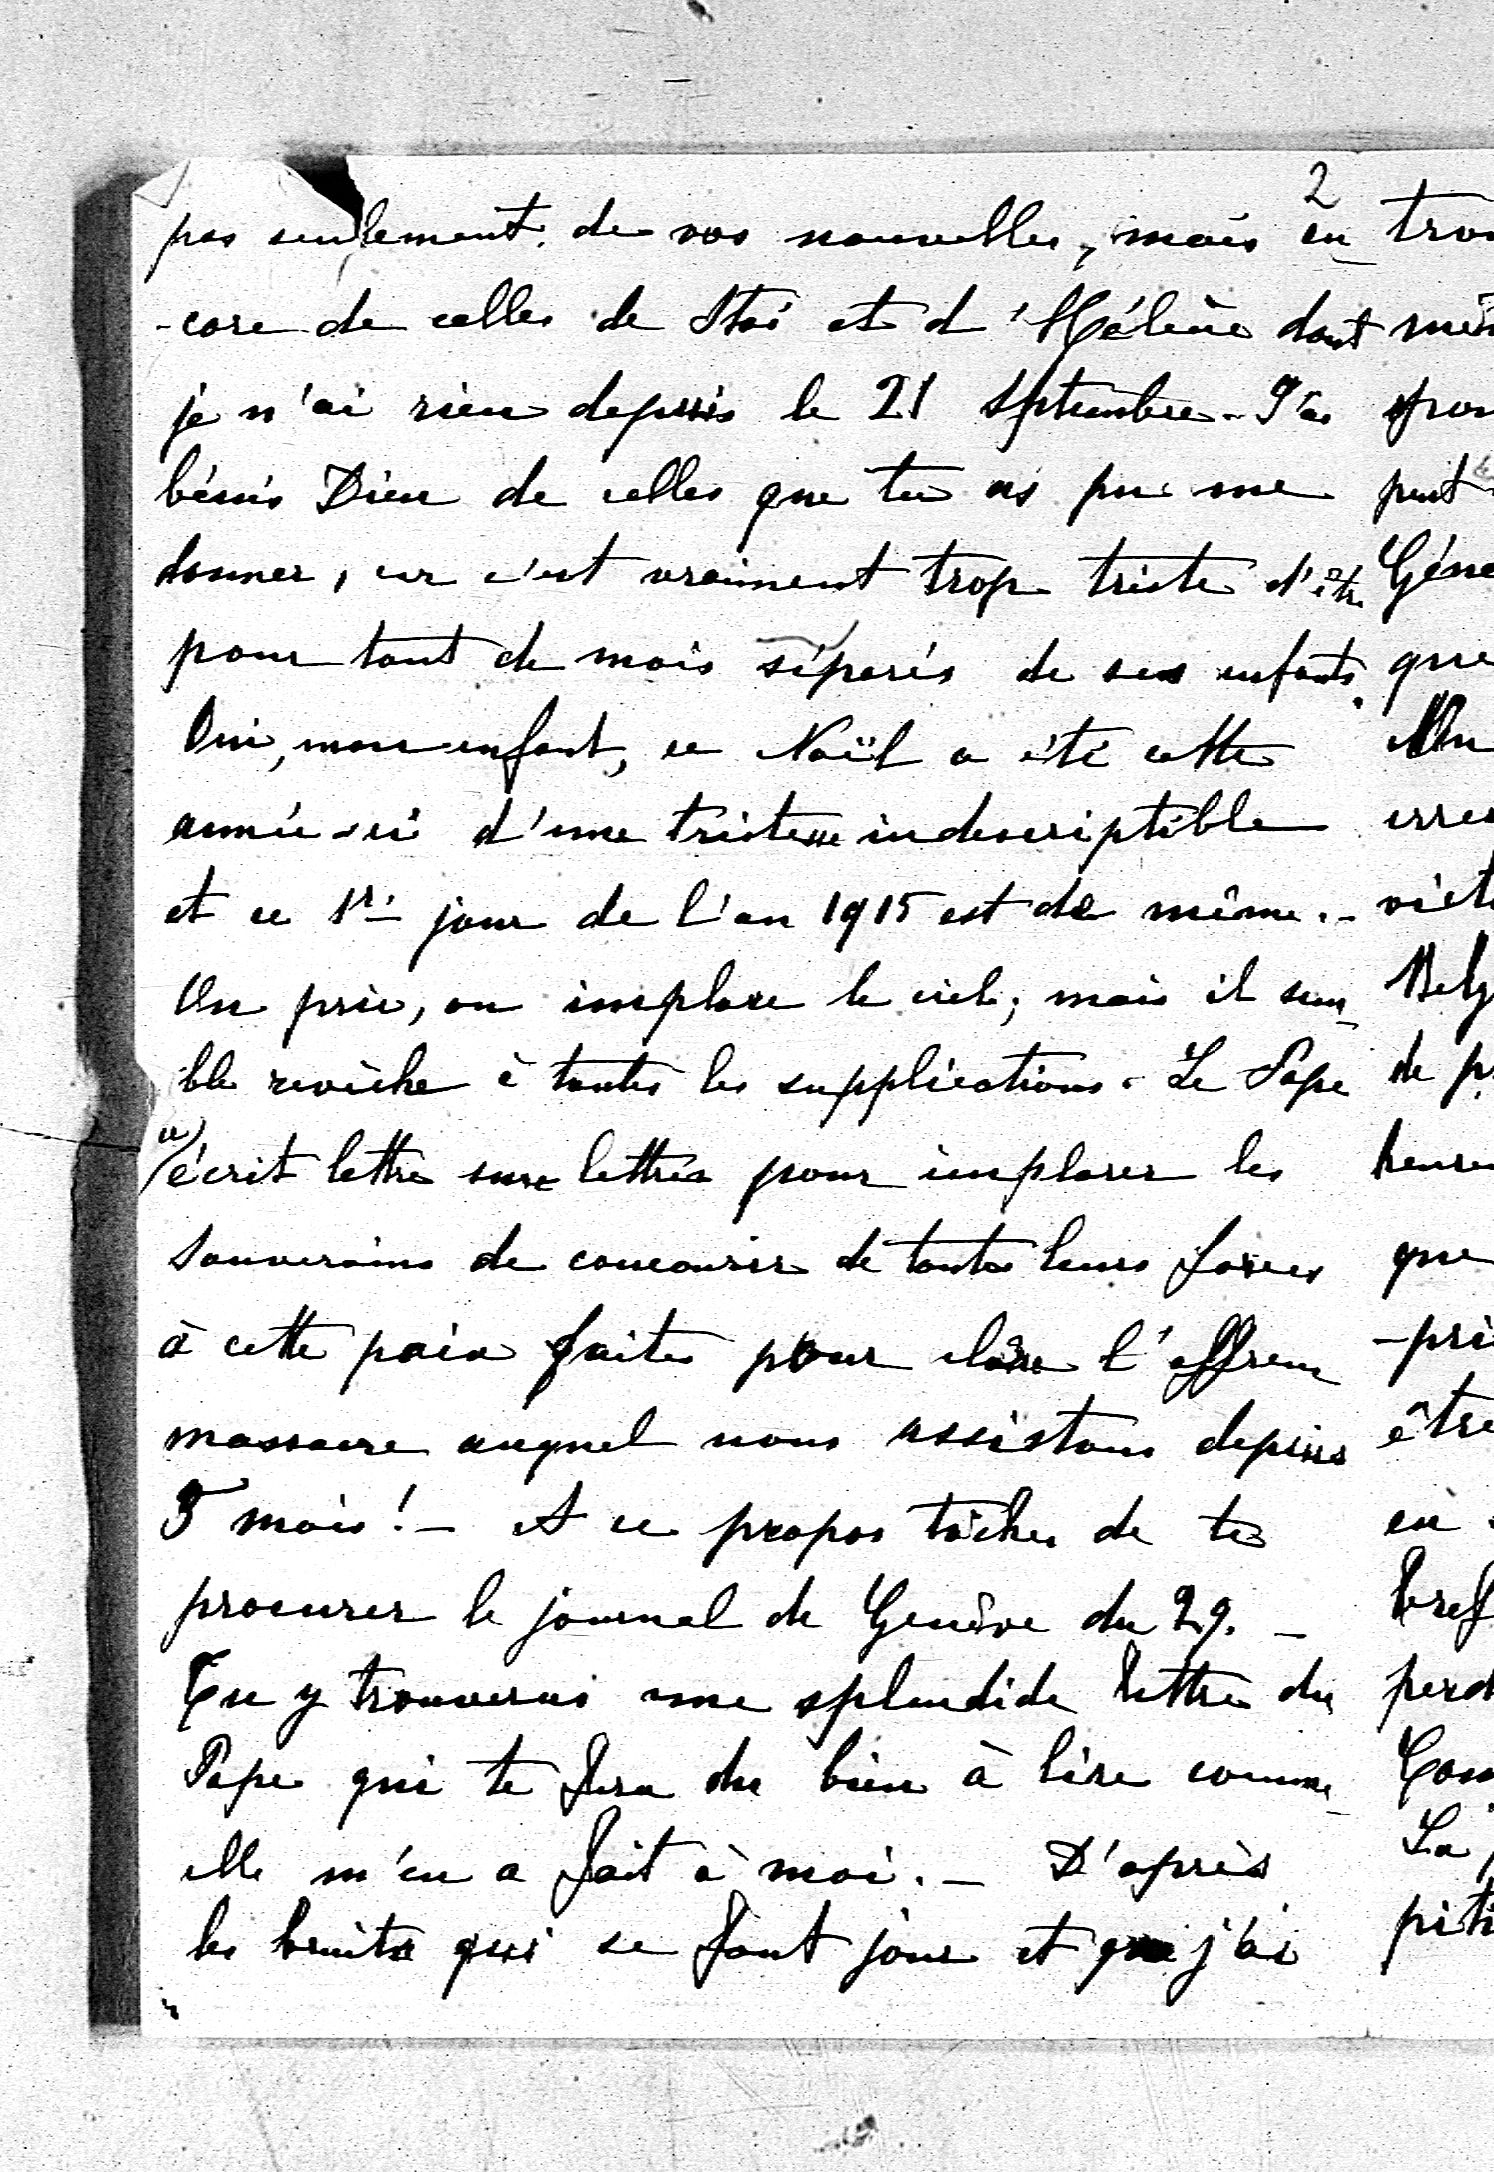 2
pas seulement de vos nouvelles, mais en
-core de celles de Stoï et d'Hélène dont
je n'ai rien depuis le 21 Septembre. J'ai
bénis Dieu de celles que tu as pu me
donner, car c'est vraiment trop triste d'être
pour tant de mois séparés de ses enfants.
Oui, mon enfant, ce Noël a été cette
année-ci d'une tristesse indescriptible
et ce 1r jour de l'an 1915 est de même. -
On prie, on implore le ciel; mais il sem
ble revêche à toutes les supplications. Le Pape
a écrit lettre sur lettres pour implorer les
Souverains de concourir de toutes leurs forces
à cette paix faite pour clore l'affreux
massacre auquel nous assistons depuis
5 mois! - A ce propos tâches de te
procurer le journal de Genève du 29. -
Tu y trouveras une splendide lettre du
Pape qui te fera du bien à lire comme
elle m'en a fait à moi. - D'après
les bruits qui se font jour et que j'ai
que
de
être
en
La